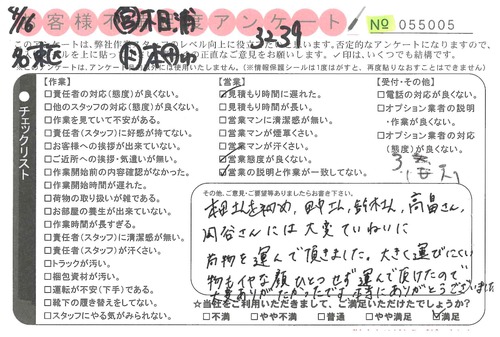 8/16
お客様不満足度アンケート
№ 055005
3239
このアンケートは、弊社作
否定的なアンケートになりますので、
✓印は、いくつでも結構です。
【作業】
□責任者の対応(態度)が良くない。
□他のスタッフの対応(態度)が良くない。
□作業を見ていて不安がある。
□責任者(スタッフ)に好感が持てない。
□お客様への挨拶が出来ていない。
□ご近所への挨拶・気遣いが無い。
□作業開始前の内容確認がなかった。
□作業開始時間が遅れた。
□荷物の取り扱いが雑である。
□お部屋の養生が出来ていない。
□作業時間が長すぎる。
□責任者(スタッフ)に清潔感が無い。
□責任者(スタッフ)が汗くさい。
□トラックが汚い。
□梱包資材が汚い。
□運転が不安(下手)である。
□靴下の履き替えをしてない。
□スタッフにやる気がみられない。
【営業】
□見積もり時間に遅れた。
□見積もり時間が長い。
□営業マンに清潔感が無い。
□営業マンが煙草くさい。
□営業マンが汗くさい。
□営業態度が良くない。
□営業の説明と作業が一致してない。
【受付・その他】
□電話の対応が良くない。
□オプション業者の説明
・作業が良くない。
□オプション業者の対応
(態度)が良くない。
チェックリスト
その他、ご意見・ご要望等ありましたらお書き下さい。
本田さんを始め、田中さん、鈴木さん、高畠さん、
岡谷さんには大変ていねいに
荷物を運んで頂きました。大きく運びにくい
物もイヤな顔ひとつせず運んで頂けたので
大変ありがたかったです。本当にありがとうございました
☆当社をご利用いただきまして、ご満足いただけたでしょうか?
□不満 □やや不満 □普通 □やや満足 ☑満足